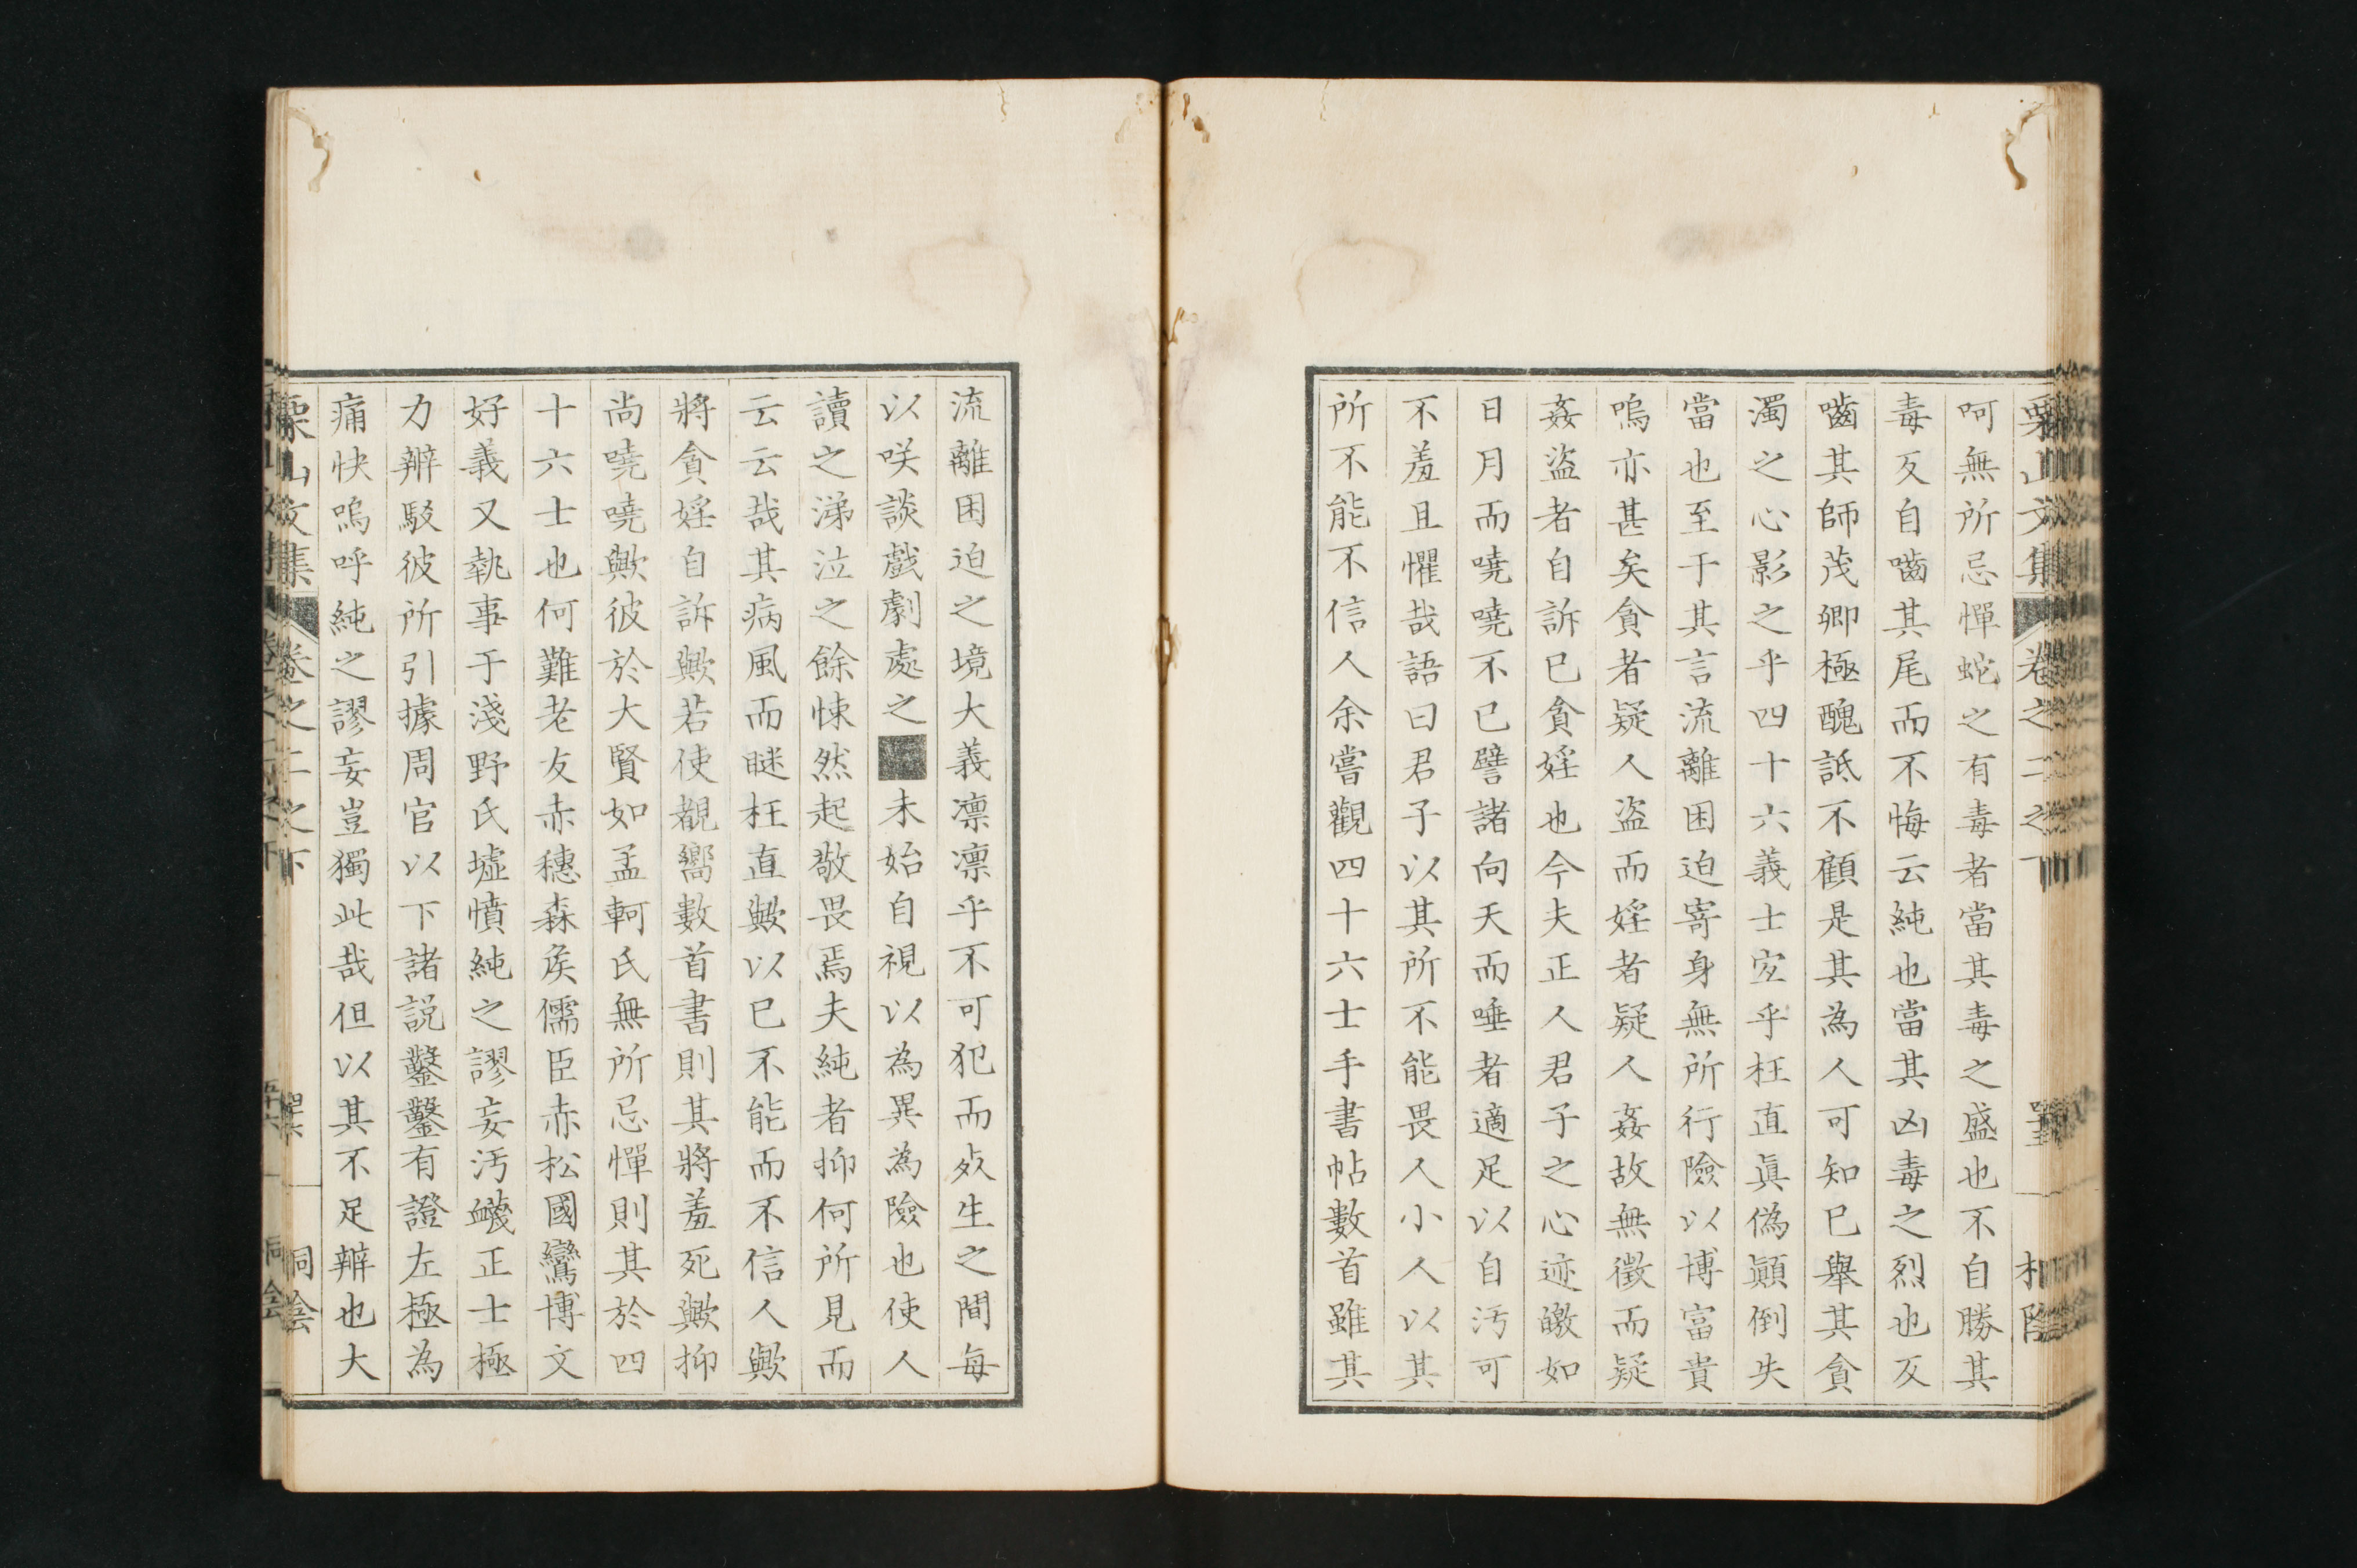 栗山文集 卷之二之下
呵無所忌憚蛇之有毒者當其毒之盛也不自勝其
毒反自嚙其尾而不悔云純也當其凶毒之烈也反
嚙其師茂卿極醜詆不顧是其為人可知巳舉其貪
濁之心影之乎四十六義士宐乎枉直眞偽顚倒失
當也至于其言流離困迫寄身無所行險以博富貴
嗚亦甚矣貪者疑人盜而婬者疑人姦故無徵而疑
姦盜者自訴已貪婬也今夫正人君子之心迹皦如
日月而嘵嘵不已譬諸向天而唾者適足以自汚可
不羞且懼哉語曰君子以其所不能畏人小人以其
所不能不信人余嘗觀四十六士手書帖數首雖其
流離困迫之境大義凛凛乎不可犯而㱙生之間每
以咲談戲劇處之■未始自視以為異為險也使人
讀之涕泣之餘悚然起敬畏焉夫純者抑何所見而
云云哉其病風而瞇枉直歟以已不能而不信人歟
將貪婬自訴歟若使覩嚮數首書則其將羞死歟抑
尚嘵嘵歟彼於大賢如孟軻氏無所忌憚則其於四
十六士也何難老友赤穗森矦儒臣赤松國鸞博文
好義又執事于淺野氏墟憤純之謬妄汚衊正士極
力辨駁彼所引據周官以下諸説鑿鑿有證左極為
痛快嗚呼純之謬妄豈獨此哉但以其不足辨也大
栗山文集 卷之二之下 桐陰